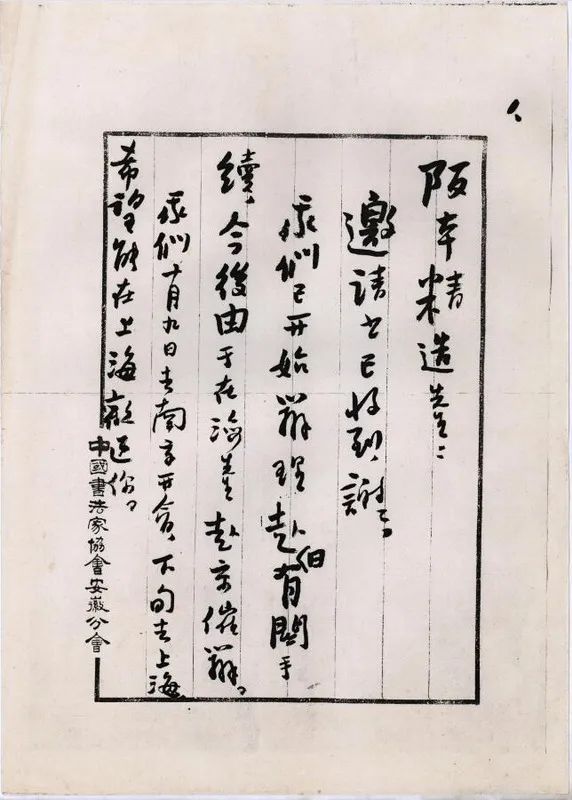 阪本精造先生：
邀請书已收到，謝々。
我們已开始辦理赴有關手
續，今後由于在海先生赴京催辦。
我們十月九日去南京开會，下旬去上海，
希望能在上海歡迎你。
中國書法家協會安徽分會